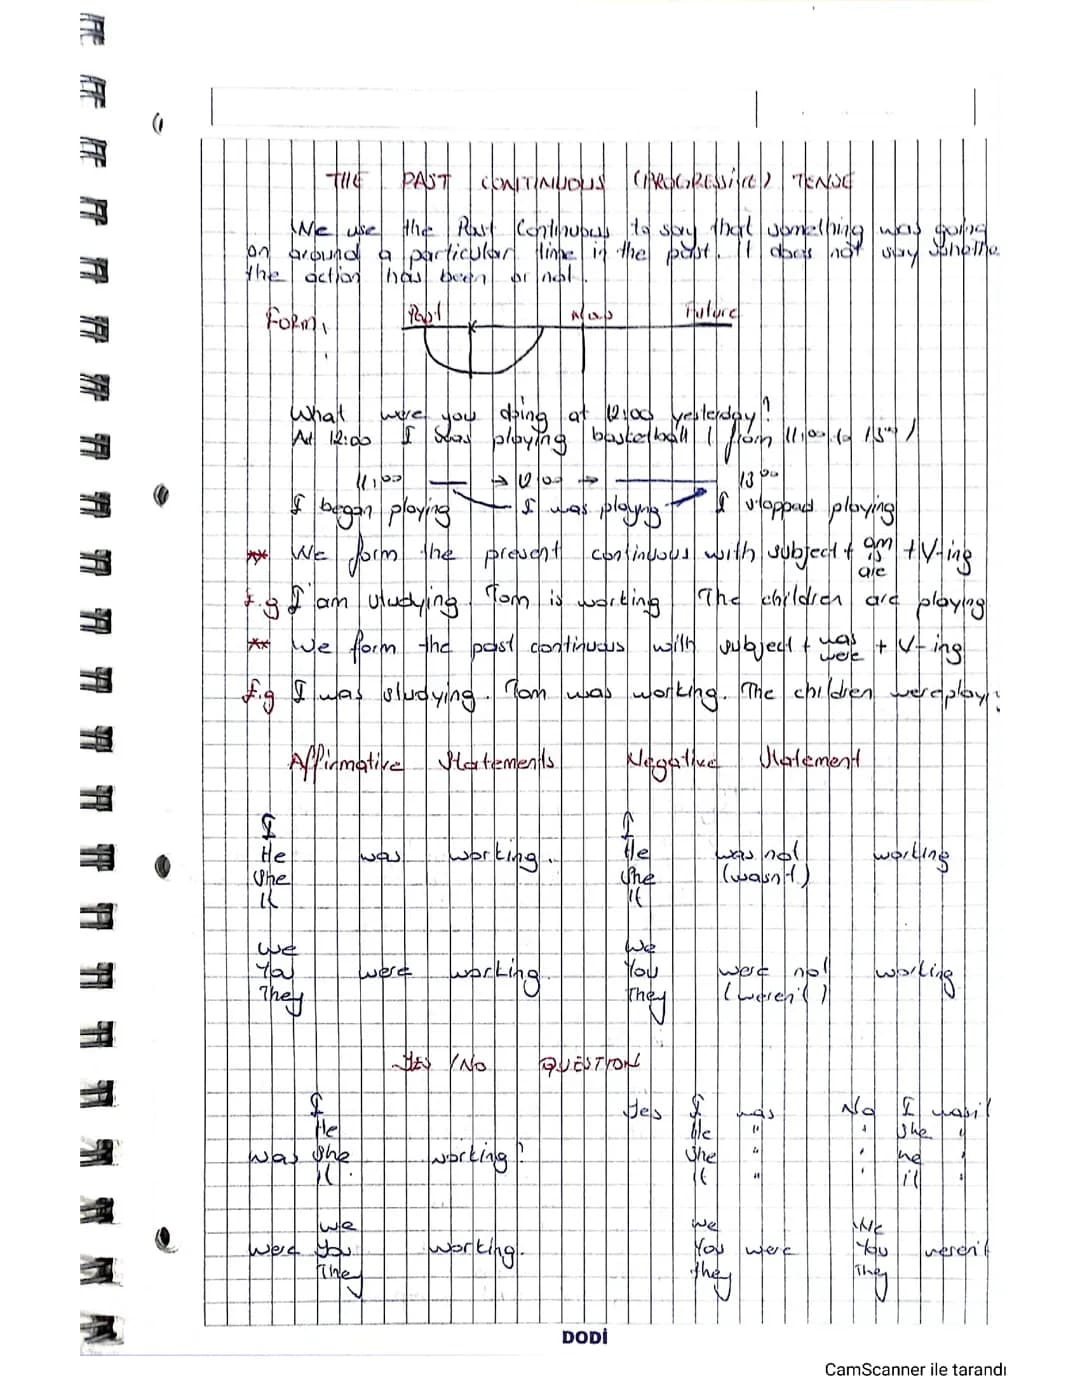 THE PAST CONTINUOUS (PROGRESSIVE) TENSE
We use the Past Continuous to say that something was going
on around a particular time in the past. It does not say whethe
the action has been or not.
Form,
Past Now Future
What were you doing at 12:00 yesterday?
At 12:00 I was playing basketball ( from 11:00 to 13:00 )
11:00 → 12:00 → 13:00
I began playing I was playing I stopped playing
** We form the present continuous with subject + am is are + V-ing
E.g I'am studying. Tom is working. The children are playing
** We form the past continuous with subject + was were + V-ing
E.g I was studying. Tom was working. The children were play
Affirmative Statements Negative Statement
I I
He was working. He was not working
She She (wasn't)
It It
We We
You were working. You were not working
They They (weren't)
Yes / No QUESTION
I Yes I was No I wasn't
He He " " she "
was She working? She " " he "
It. It " " it "
we we We
were You working. You were You weren't
They they They
DODİ
CamScanner ile tarandı